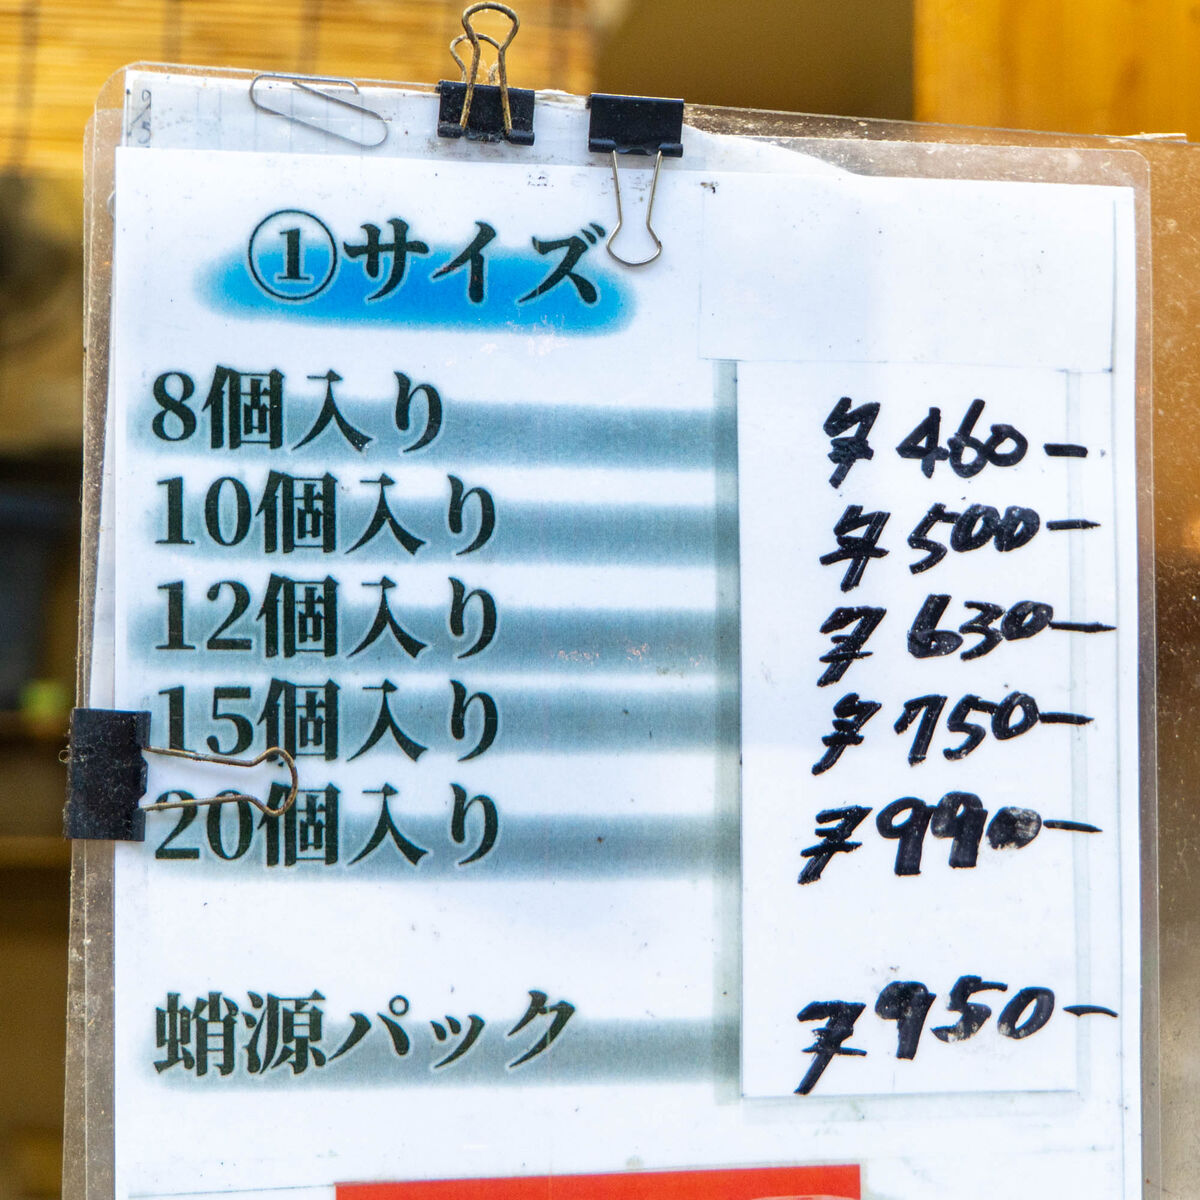 9/5
①サイズ
8個入り ¥460-
10個入り ¥500-
12個入り ¥630-
15個入り ¥750-
20個入り ¥990-
蛸源パック ¥950-